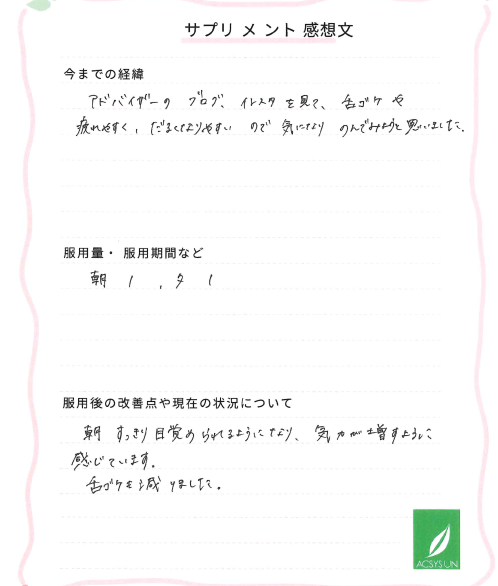 サプリメント感想文
今までの経緯
アドバイザーの ブログ、インスタを見て、舌ゴケや
疲れやすく、だるくなりやすい ので 気になり のんでみようと思いました。
服用量・服用期間など
朝 1 , 夕 1
服用後の改善点や現在の状況について
朝 すっきり目覚められるようになり、気力が増すように
感じています。
舌ゴケも減りました。
ACSYSUN